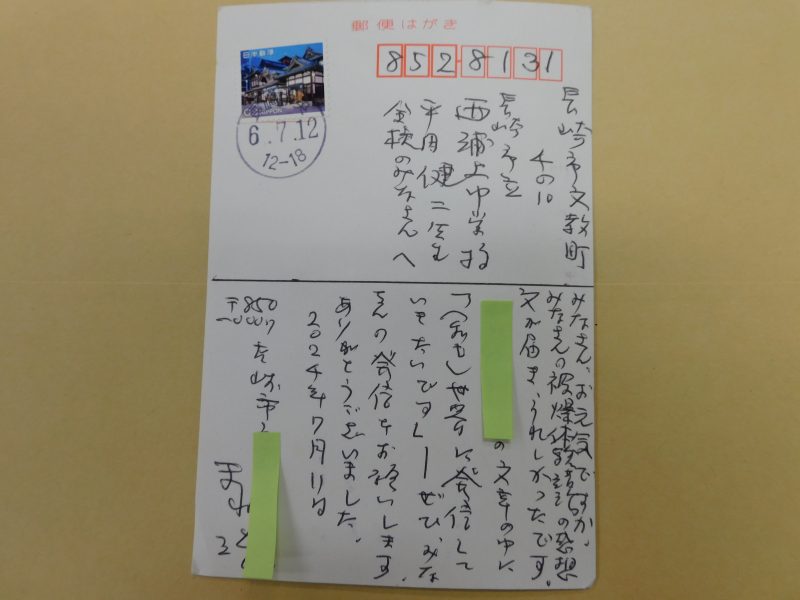 郵便はがき
852-8131
日本郵便
NIPPON
6.7.12
12-18
長崎市文教町
4の10
長崎市立
西浦上中学校
平田健二先生
全校のみなさんへ
みなさん、お元気ですか。
みなさんの被爆体験講話の感想
文が届き、うれしかったです。
の文章の中に
「私も世界に発信して
いきたいです」ーぜひ、みな
さんの発信をお願いします
ありがとうございました。
2024年7月11日
〒850
長崎市